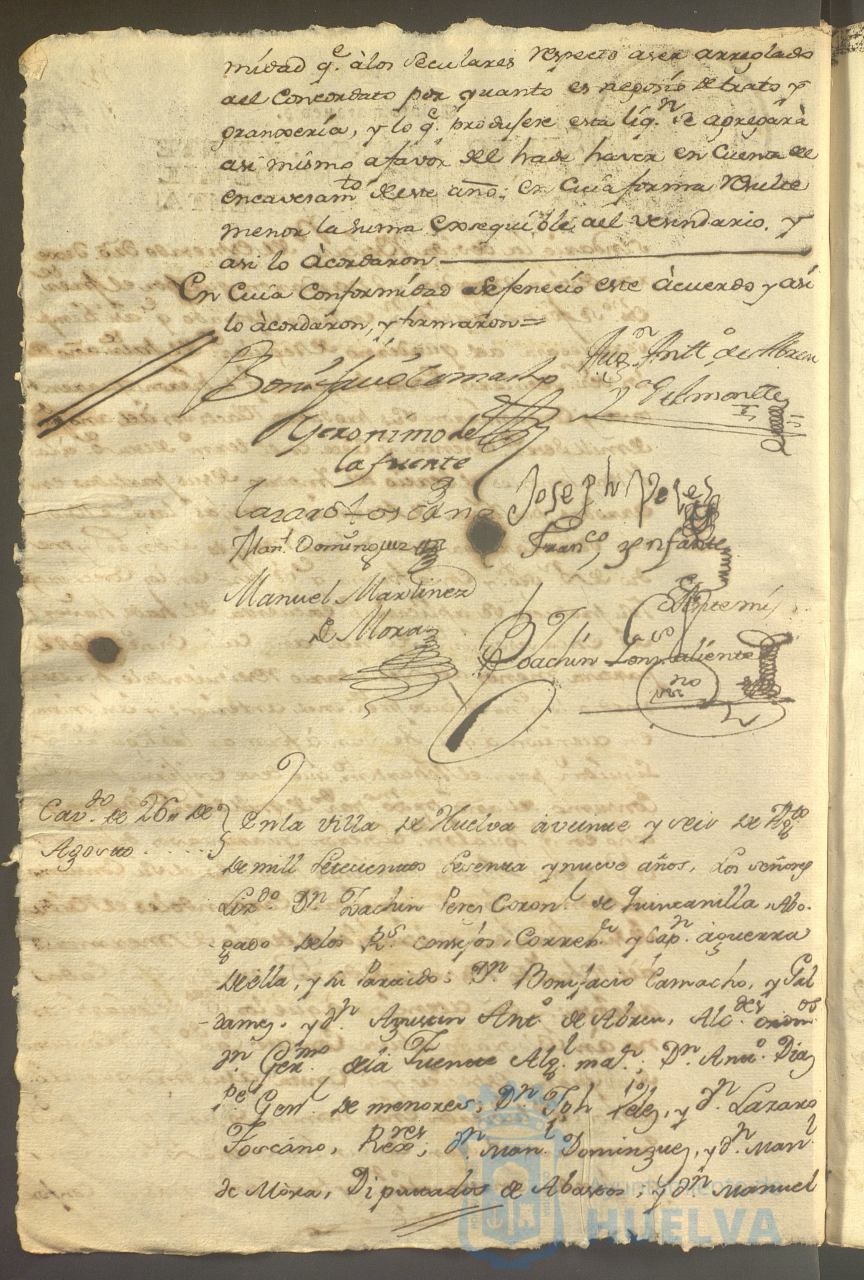 midad q.e â los seculares respecto a ser arreglado
al Concordato por quanto es negosio de trato y
grangeria, y lo q.e produsere esta liq.n se agregarà
asi mismo a favor del hade haver en Cuenta del
encavesam.to de este año: en Cuia forma resulte
menor la suma exsequible al vesindario, y
asi lo àcordaron
En Cuia Conformidad se feneciò este àcuerdo y asi
lo àcordaron, y firmaron=
Bonifacio Camacho
Aug.n Antt.o de Abreu
Geronimo de
la fuente
Joseph Veles
Lazaro toscano
Man.l Dominguez
Fran.co Ynfante
Manuel Martinez
de Mora
Antemi
Joachin
no
Cav.do de 26,, de
Agosto
En la villa de Huelva à veinte y seis de Ag.to
de mill setecientos sesenta y nueve años, Los señores
Liz.do D.n Joachin Peres Coron.l de Quintanilla Abo-
gado de los R.s consejos, Correg.r y Cap.n à guerra
de ella, y su Partido: D.n Bonifacio Camacho, y Gal
dames, y d.n Agustin Ant.o de Abreu, Alc.des ordin.os
d.n Ger.mo de la Fuente Alg.l ma.r; D.n Ant.o Diaz
P.e Gen.l de menores; D.n Jph Velez, y d.n Lazaro
Toscano, Rex.res; d.n Man.l Dominguez, y d.n Man.l
de Mora, Diputados de Abastos, y d.n Manuel
Ayuntamiento de
HUELVA